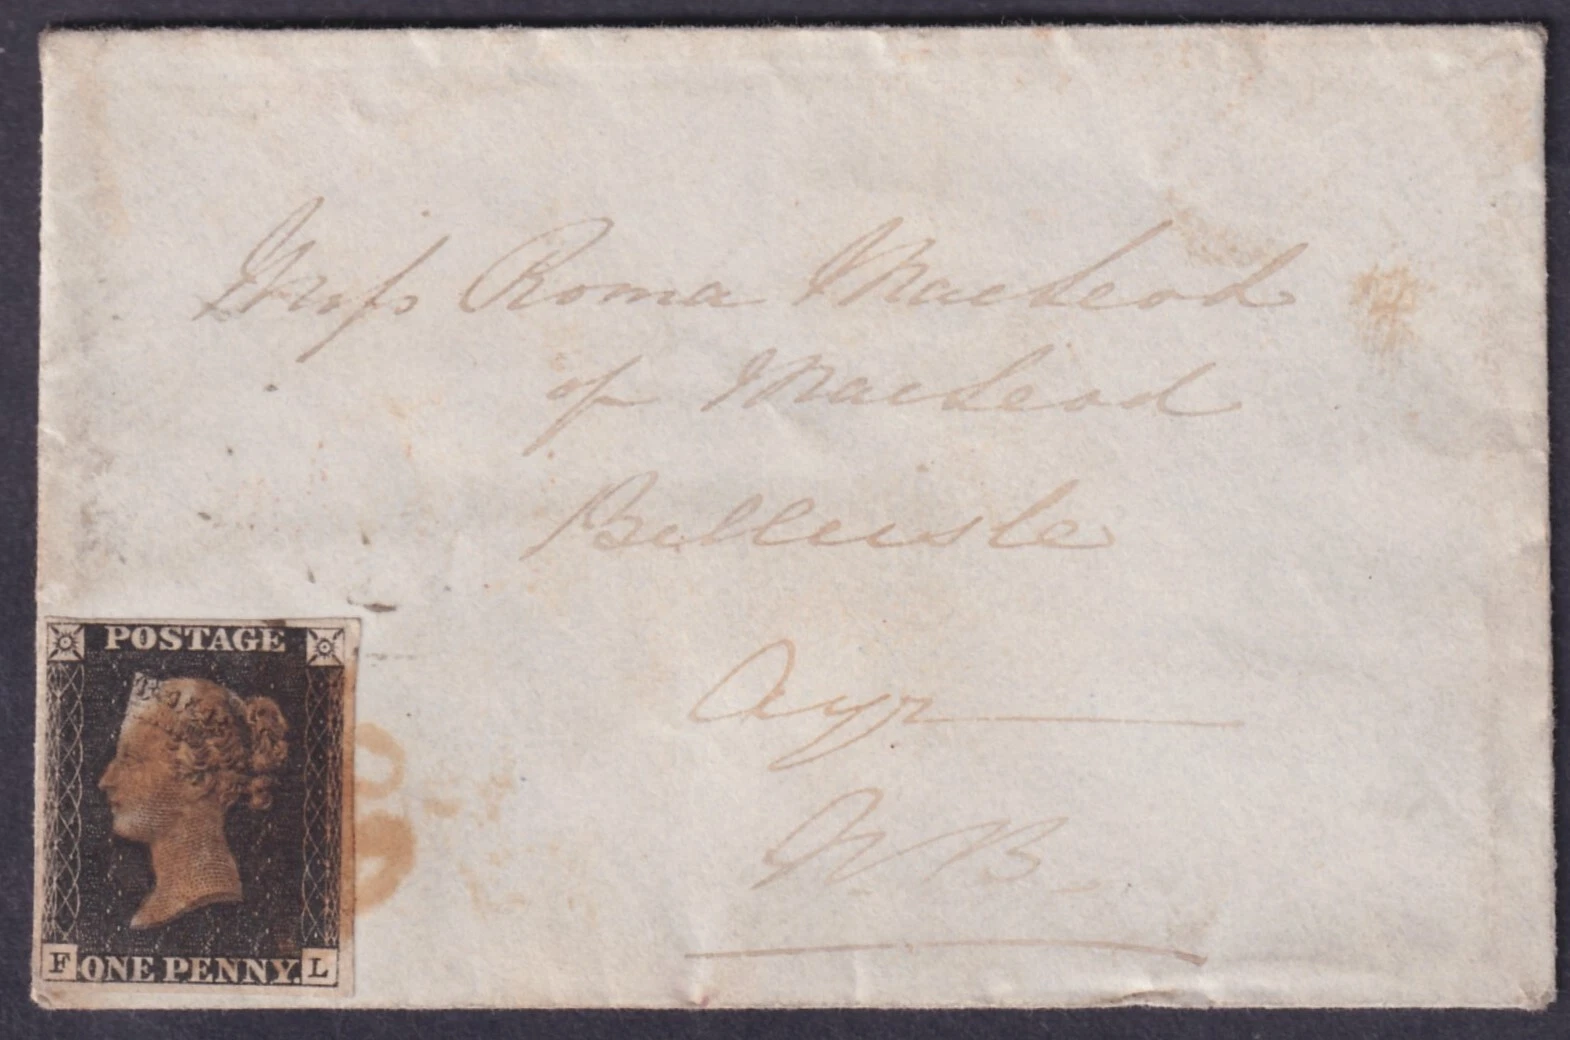 Miss Roma MacLeod
of MacLeod
Belleisle
Ayr
N B
POSTAGE
F ONE PENNY. L